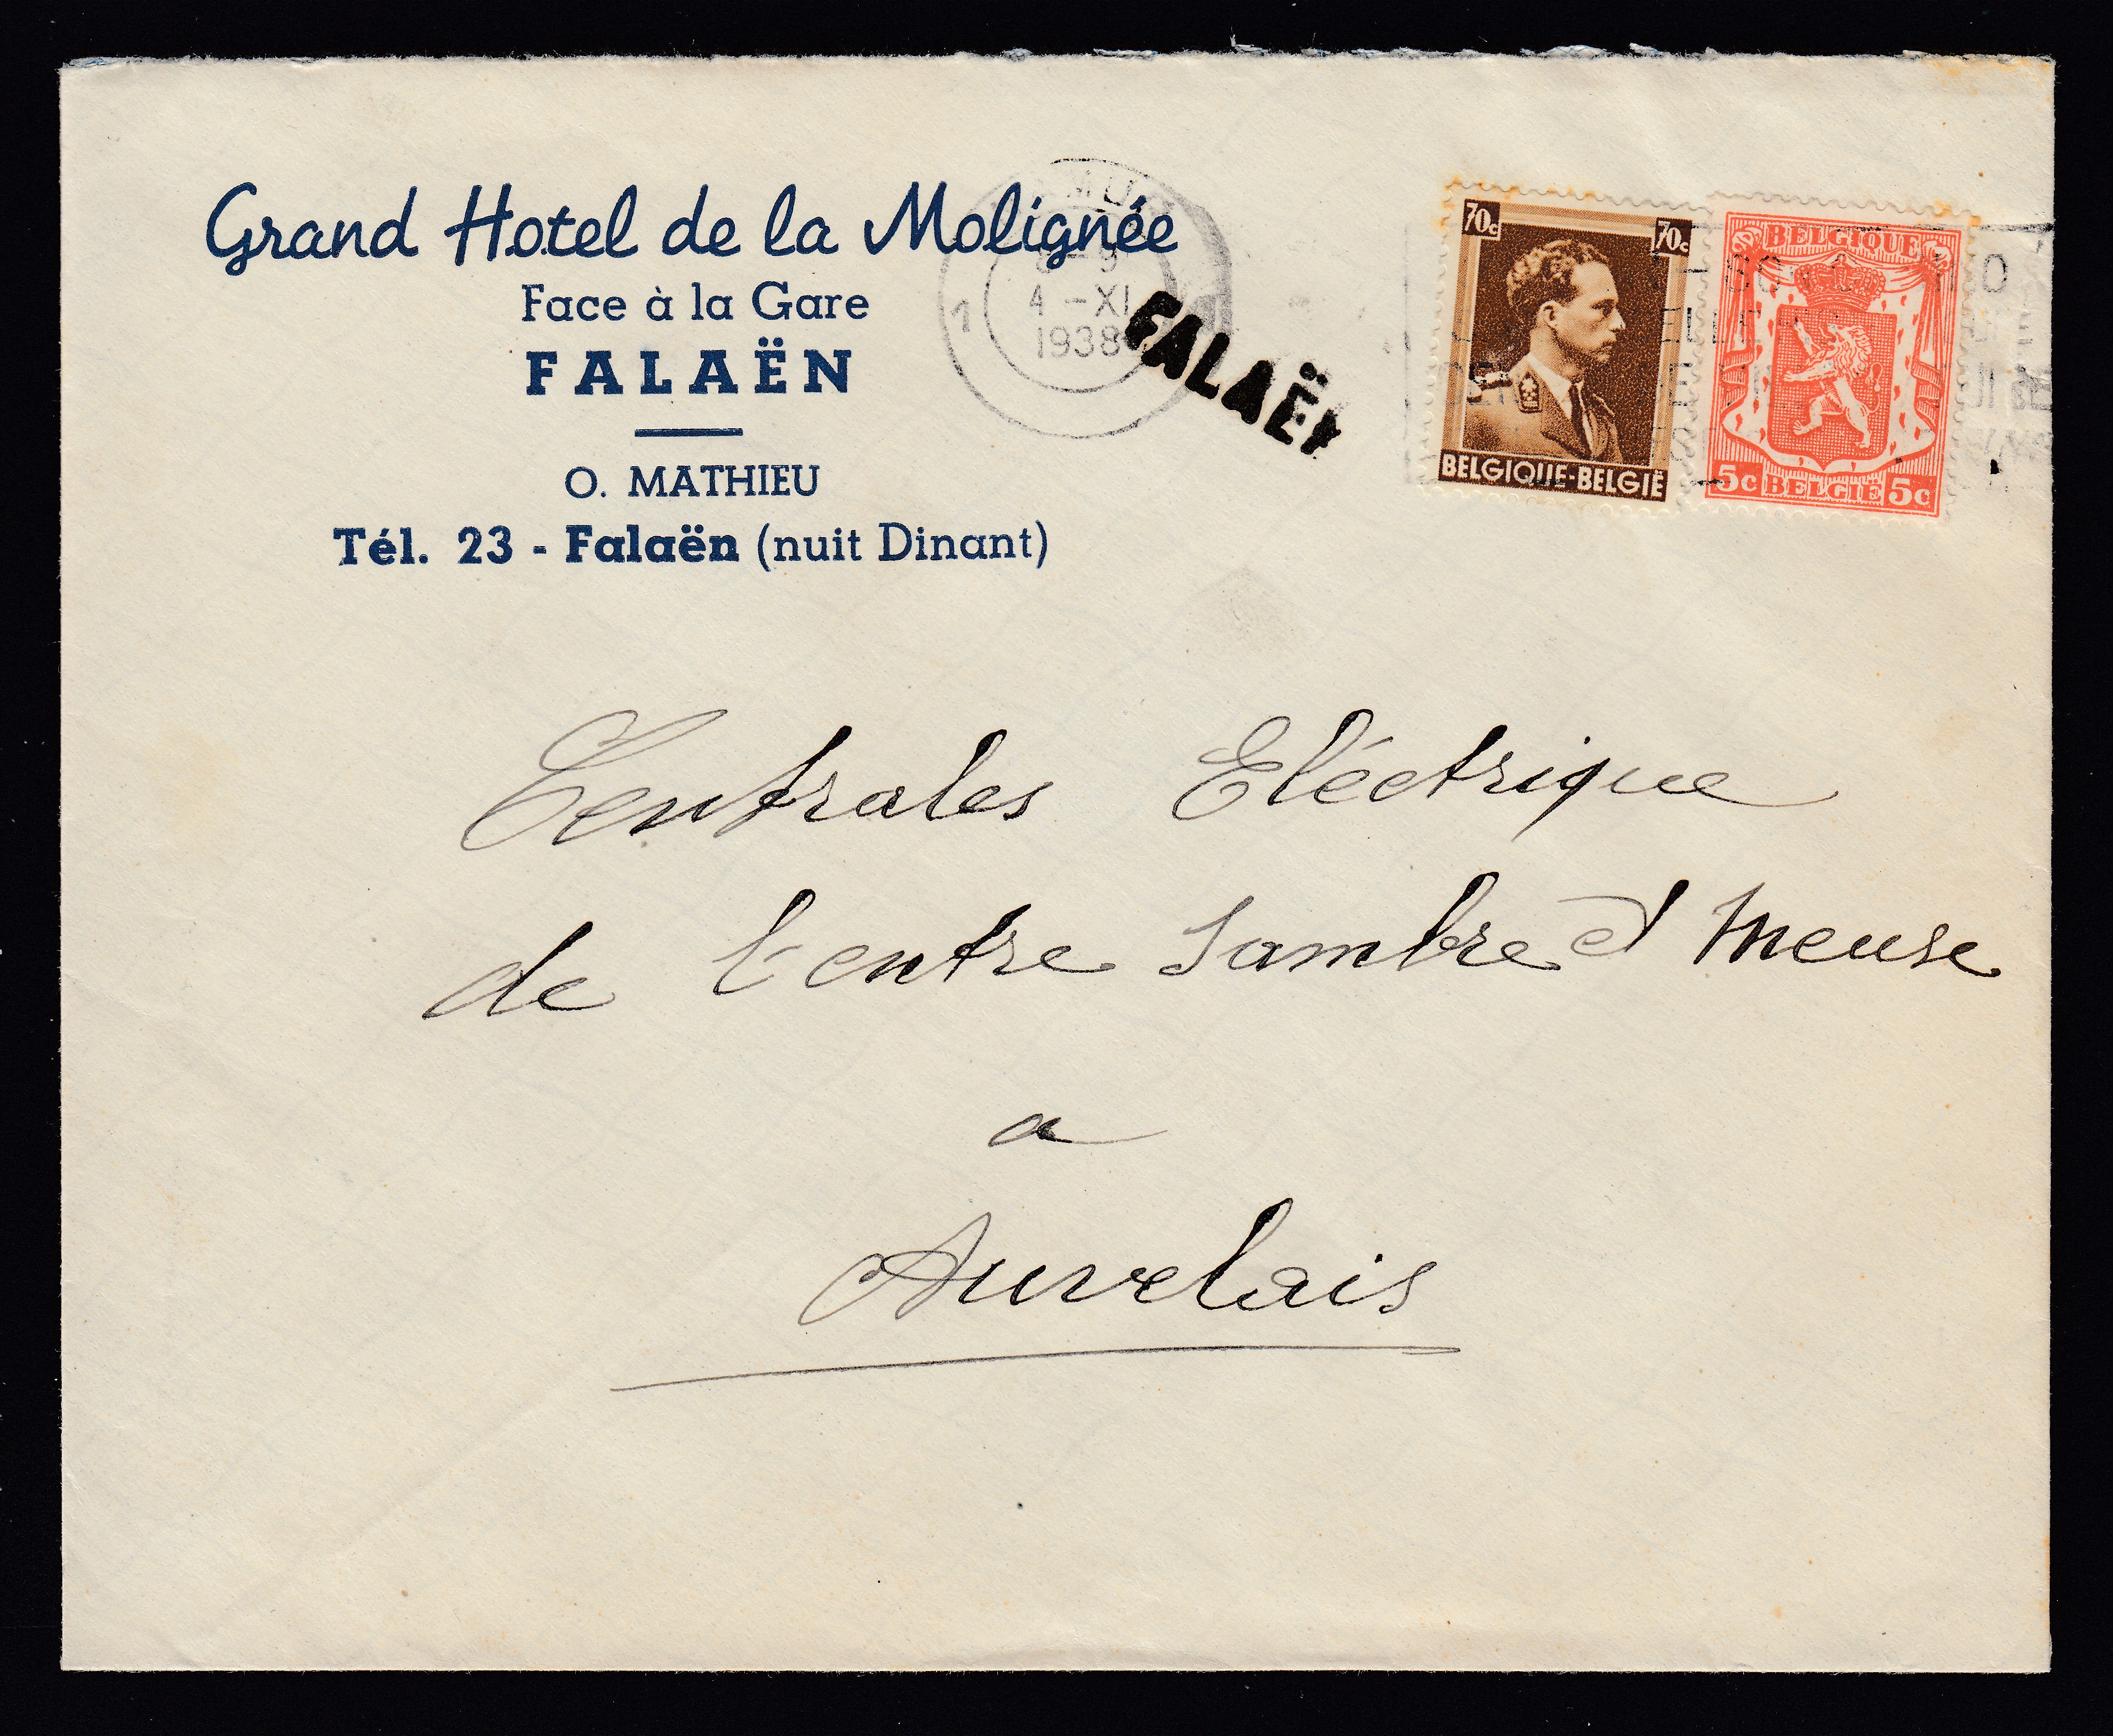 Grand Hotel de la Molignée
Face à la Gare
FALAËN
O. MATHIEU
Tél. 23 - Falaën (nuit Dinant)
4 -XI
1938
FALAËN
70c 70c
BELGIQUE-BELGIË
BELGIQUE
5c BELGIË 5c
Centrales Eléctrique
de l'entre Sambre et Meuse
a
Auvelais